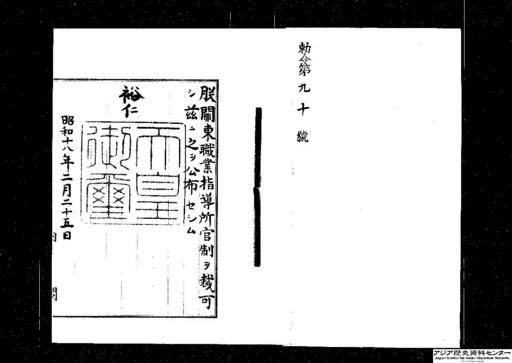 勅令第九十號
朕關東職業指導所官制ヲ裁可
シ茲ニ之ヲ公布セシム
裕仁
天皇御璽
昭和十八年二月二十五日
内閣
アジア歴史資料センター
Japan Center for Asian Historical Records